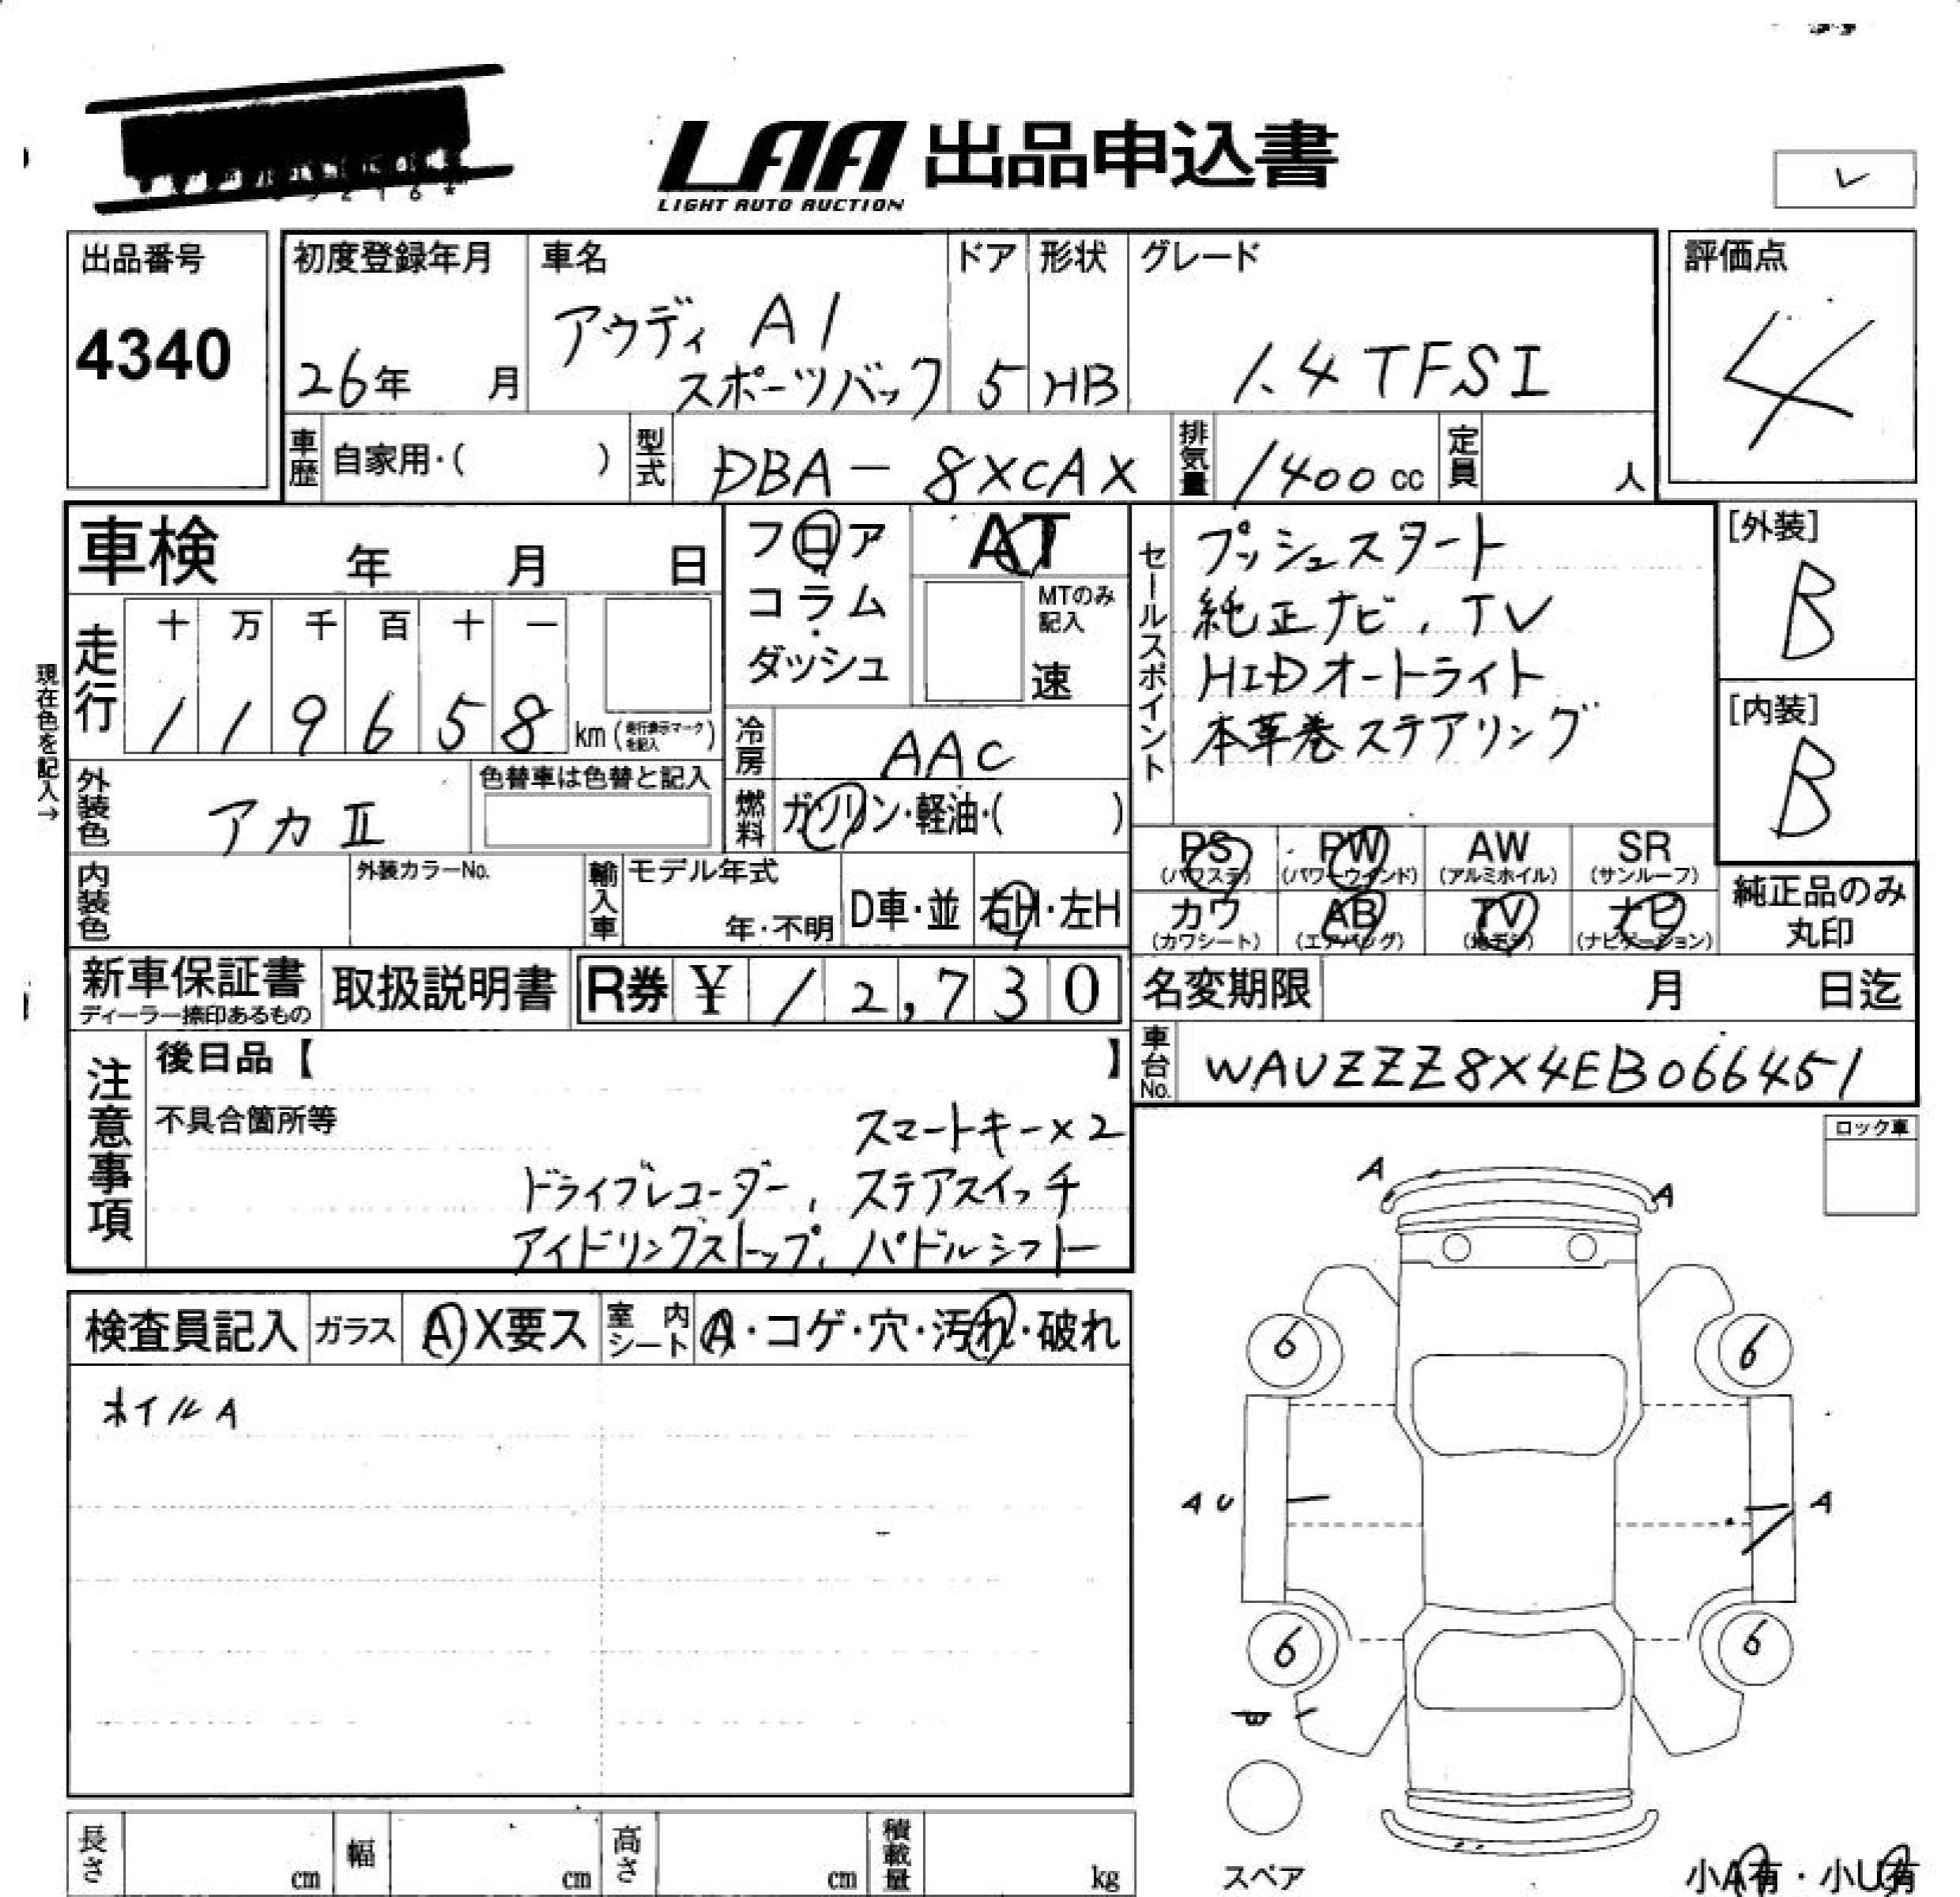 LAA 出品申込書
LIGHT AUTO AUCTION
出品番号
4340
初度登録年月
26年 月
車名
アウディ A1
スポーツバック
ドア
5
形状
HB
グレード
1.4TFSI
評価点
4
車歴 自家用・( )
型式 DBA-8XCAX
排気量 1400cc
定員 人
車検 年 月 日
フロア
コラム・
ダッシュ
AT
MTのみ
記入
速
セールスポイント
プッシュスタート
純正ナビ,TV
HIDオートライト
本革巻ステアリング
[外装]
B
[内装]
B
現在色を記入→
走行
十 万 千 百 十 一
1 1 9 6 5 8 km (走行表示マークを記入)
冷房 AAC
外装色 アカⅡ
色替車は色替と記入
燃料 ガソリン・軽油・( )
PS (パワステ)
PW (パワーウインド)
AW (アルミホイル)
SR (サンルーフ)
内装色
外装カラーNo.
輸入車 モデル年式
年・不明
D車・並
右H・左H
カワ (カワシート)
AB (エアバッグ)
TV (地デジ)
ナビ (ナビゲーション)
純正品のみ
丸印
新車保証書
ディーラー捺印あるもの
取扱説明書
R券 ¥ 12,730
名変期限 月 日迄
車台No. WAUZZZ8X4EB066451
注意事項
後日品【 】
不具合箇所等
スマートキー×2
ドライブレコーダー, ステアスイッチ
アイドリングストップ, パドルシフト
ロック車
A
A
検査員記入
ガラス A X要ス
室内シート A・コゲ・穴・汚れ・破れ
ホイルA
6
6
AU
A
6
6
スペア
長さ cm
幅 cm
高さ cm
積載量 kg
小A有・小U有